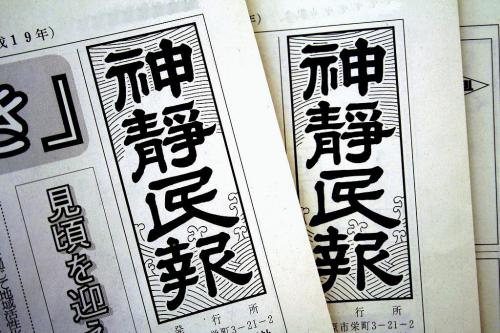 成19年）
神靜民報
見頃を迎
発行所
栄町3－21－2
年）
神靜民報
行所
市栄町3－21－2